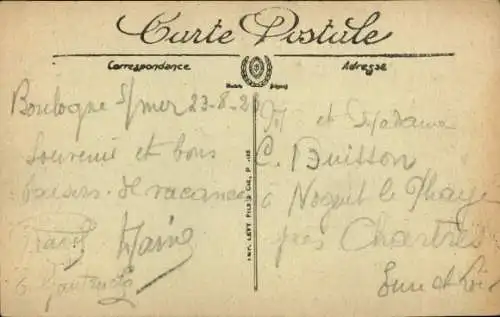 Carte Postale
Correspondance
Adresse
Boulogne s/mer 23-8-2
Souvenir et bons
baisers de vacances
IMP. LEVY FILS & CIE, P
et Madame
C. Buisson
à Nogent le Phaye
près Chartres
Eure et Loir